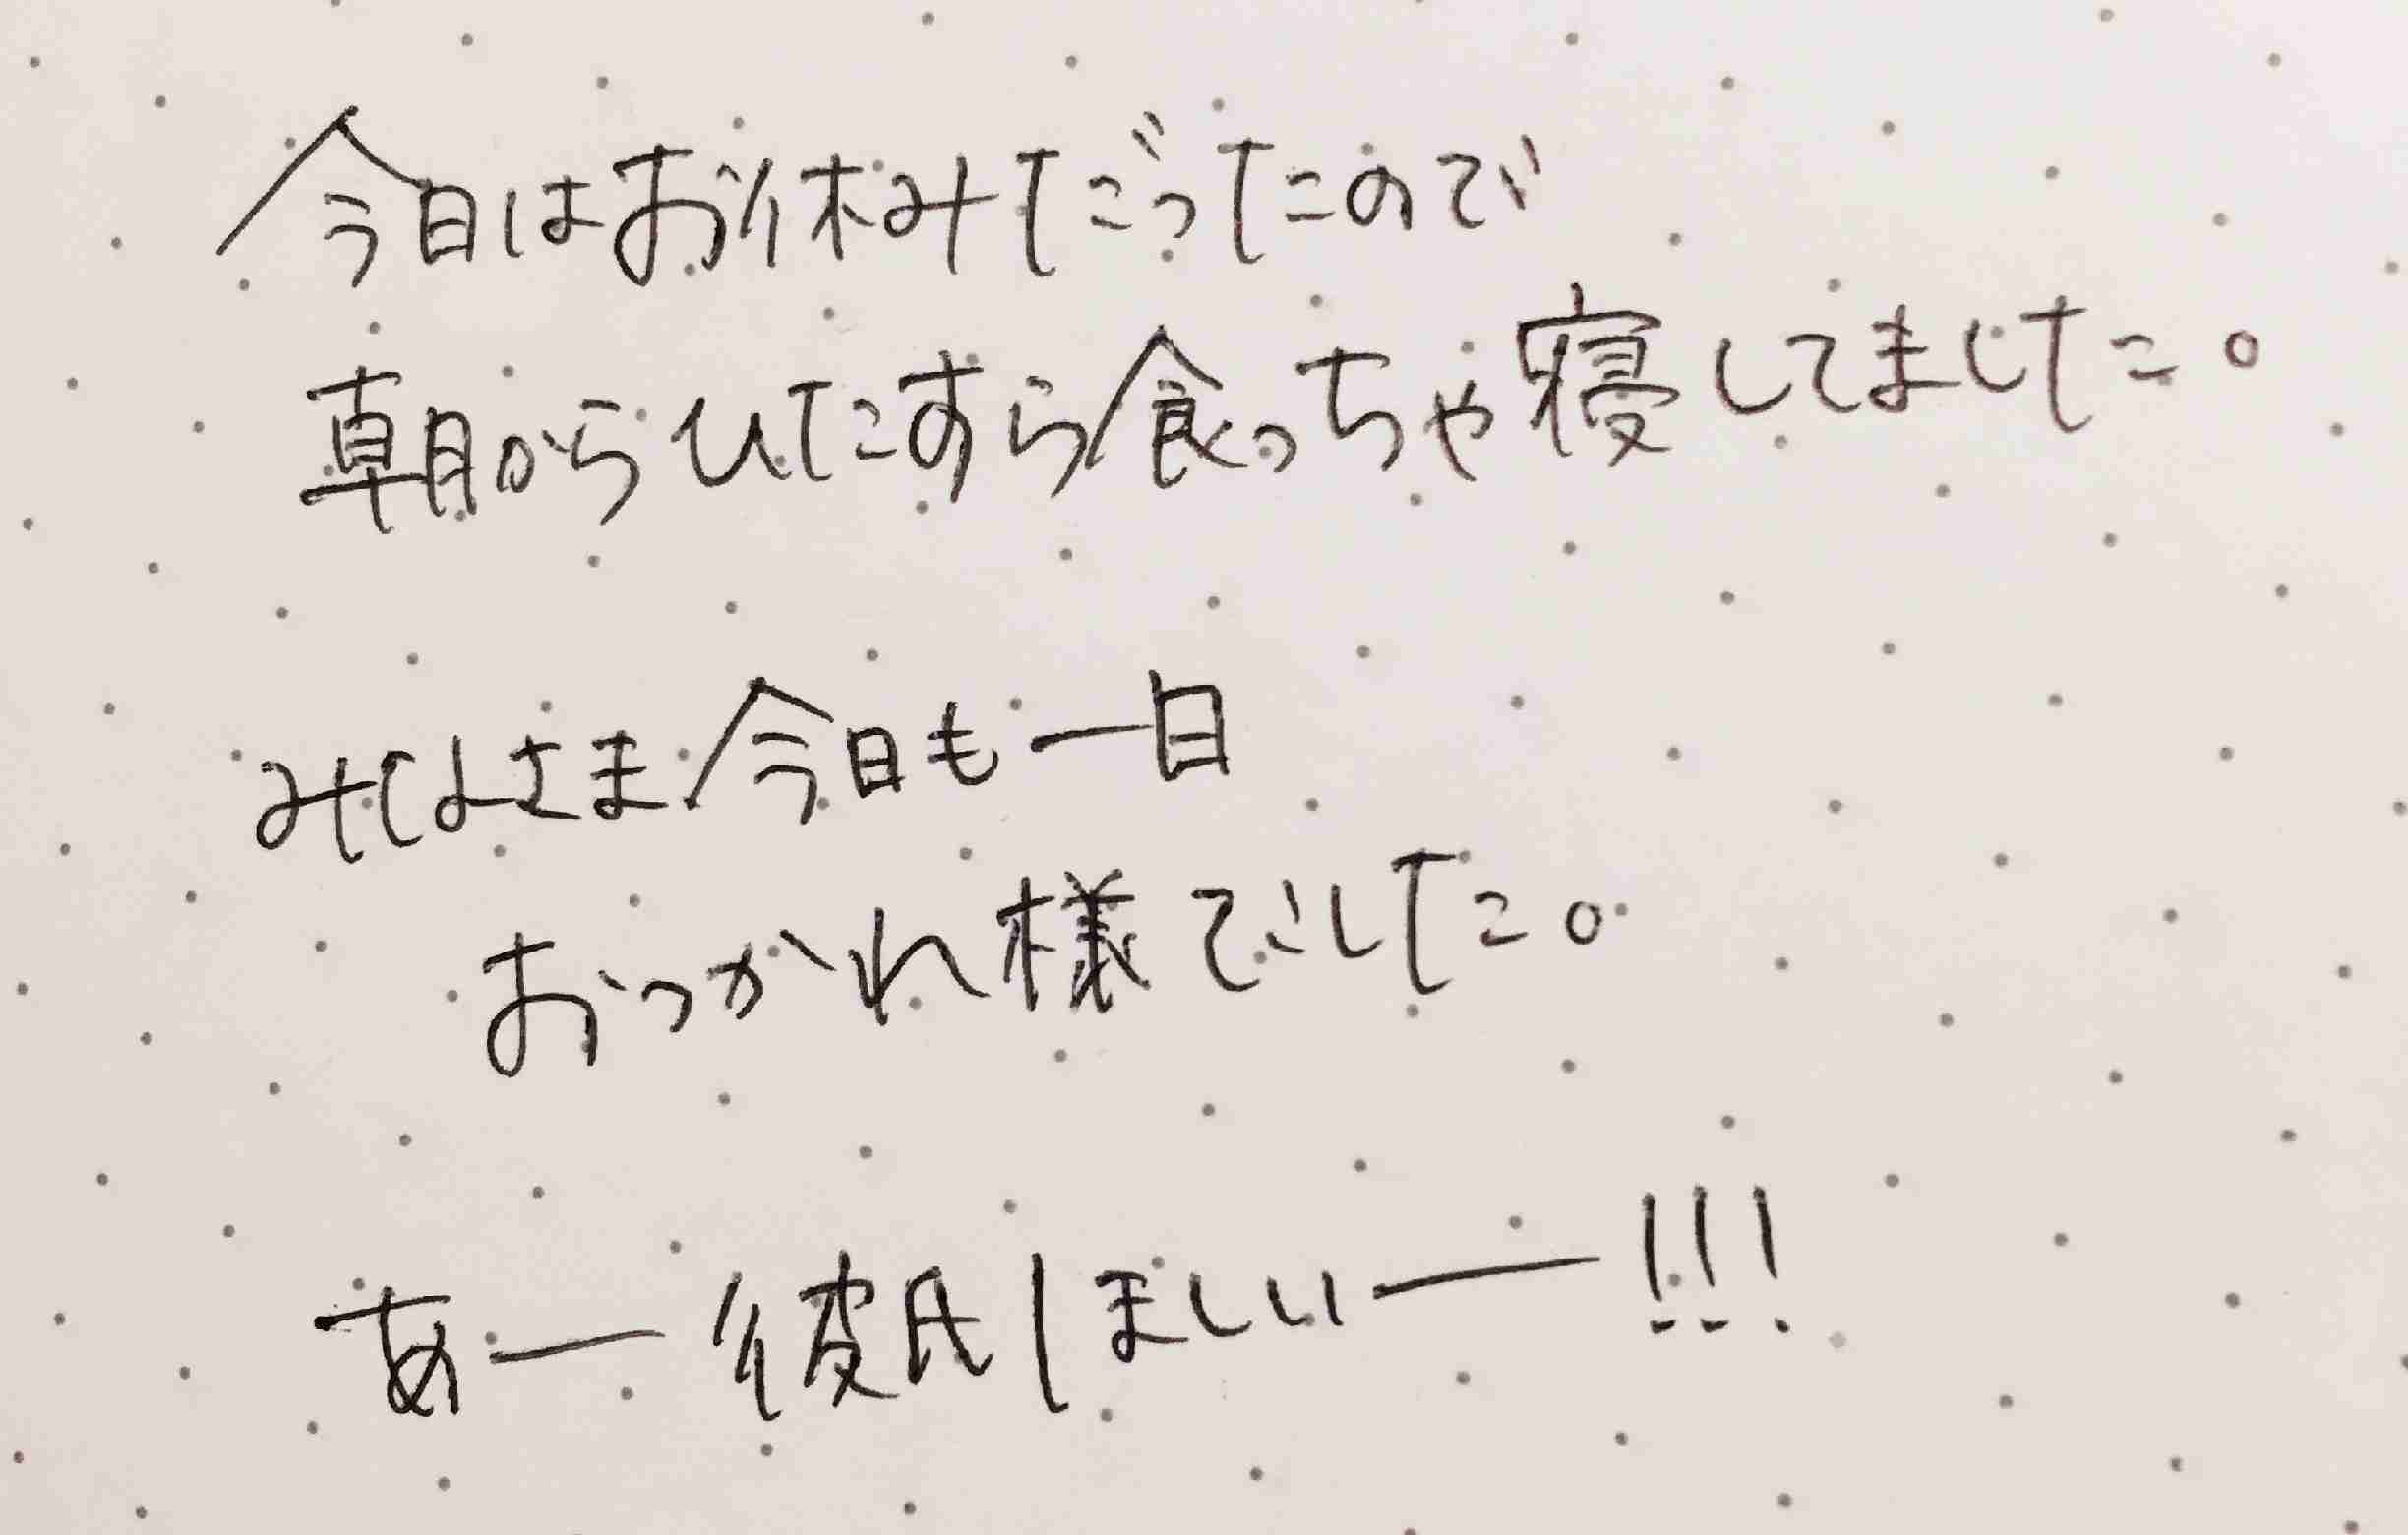 今日はお休みだったので
朝からひたすら食っちゃ寝してました。
みなさま今日も一日
おつかれ様でした。
あー彼氏ほしいー!!!